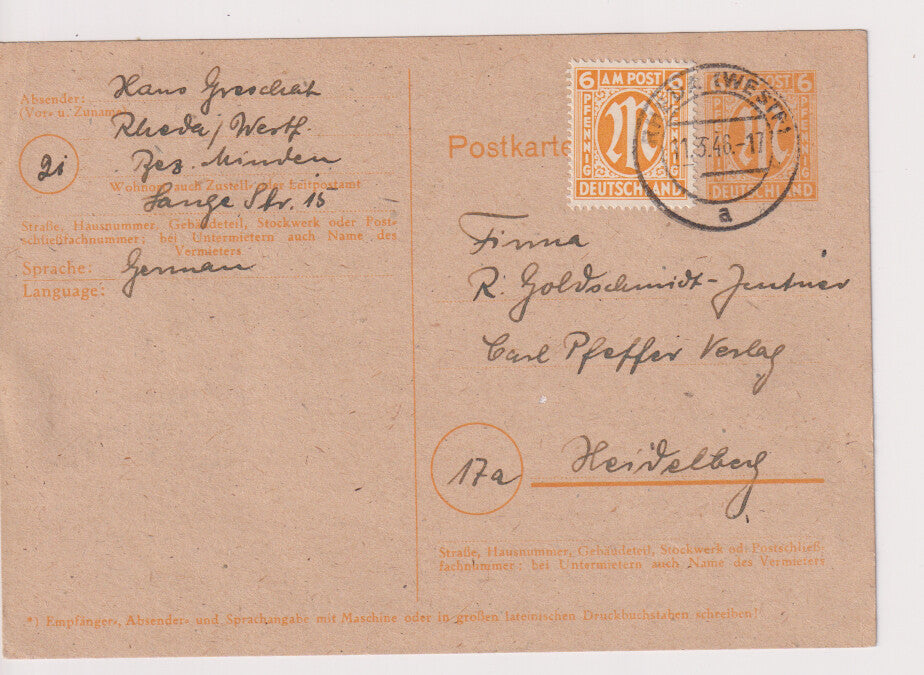 Absender:
(Vor- u. Zuname)
Hans Greschat
Rheda/Westf.
2i
Bez. Minden
Wohnort, auch Zustell- oder Leitpostamt
Lange Str. 15
Straße, Hausnummer, Gebäudeteil, Stockwerk oder Post-
schließfachnummer; bei Untermietern auch Name des
Vermieters
Sprache: German
Language:
Postkarte
6 AM POST 6
PFENNIG PFENNIG
DEUTSCHLAND
POST 6
PFENNIG
DEUTSCHLAND
RHEDA (WESTF)
46.-17
a
Firma
R. Goldschmidt-Zentner
Carl Pfeffer Verlag
17a
Heidelberg
Straße, Hausnummer, Gebäudeteil, Stockwerk od. Postschließ-
fachnummer; bei Untermietern auch Name des Vermieters
*) Empfänger-, Absender- und Sprachangabe mit Maschine oder in großen lateinischen Druckbuchstaben schreiben!